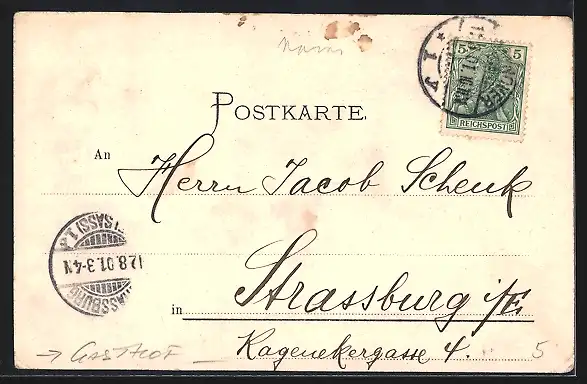 5 5
REICHSPOST
POSTKARTE.
An
Herrn Jacob Schenk
in Strassburg i/E
Kagenekergasse 4.
STRASSBURG (ELSASS) 1.
12.8.01.3-4N
5